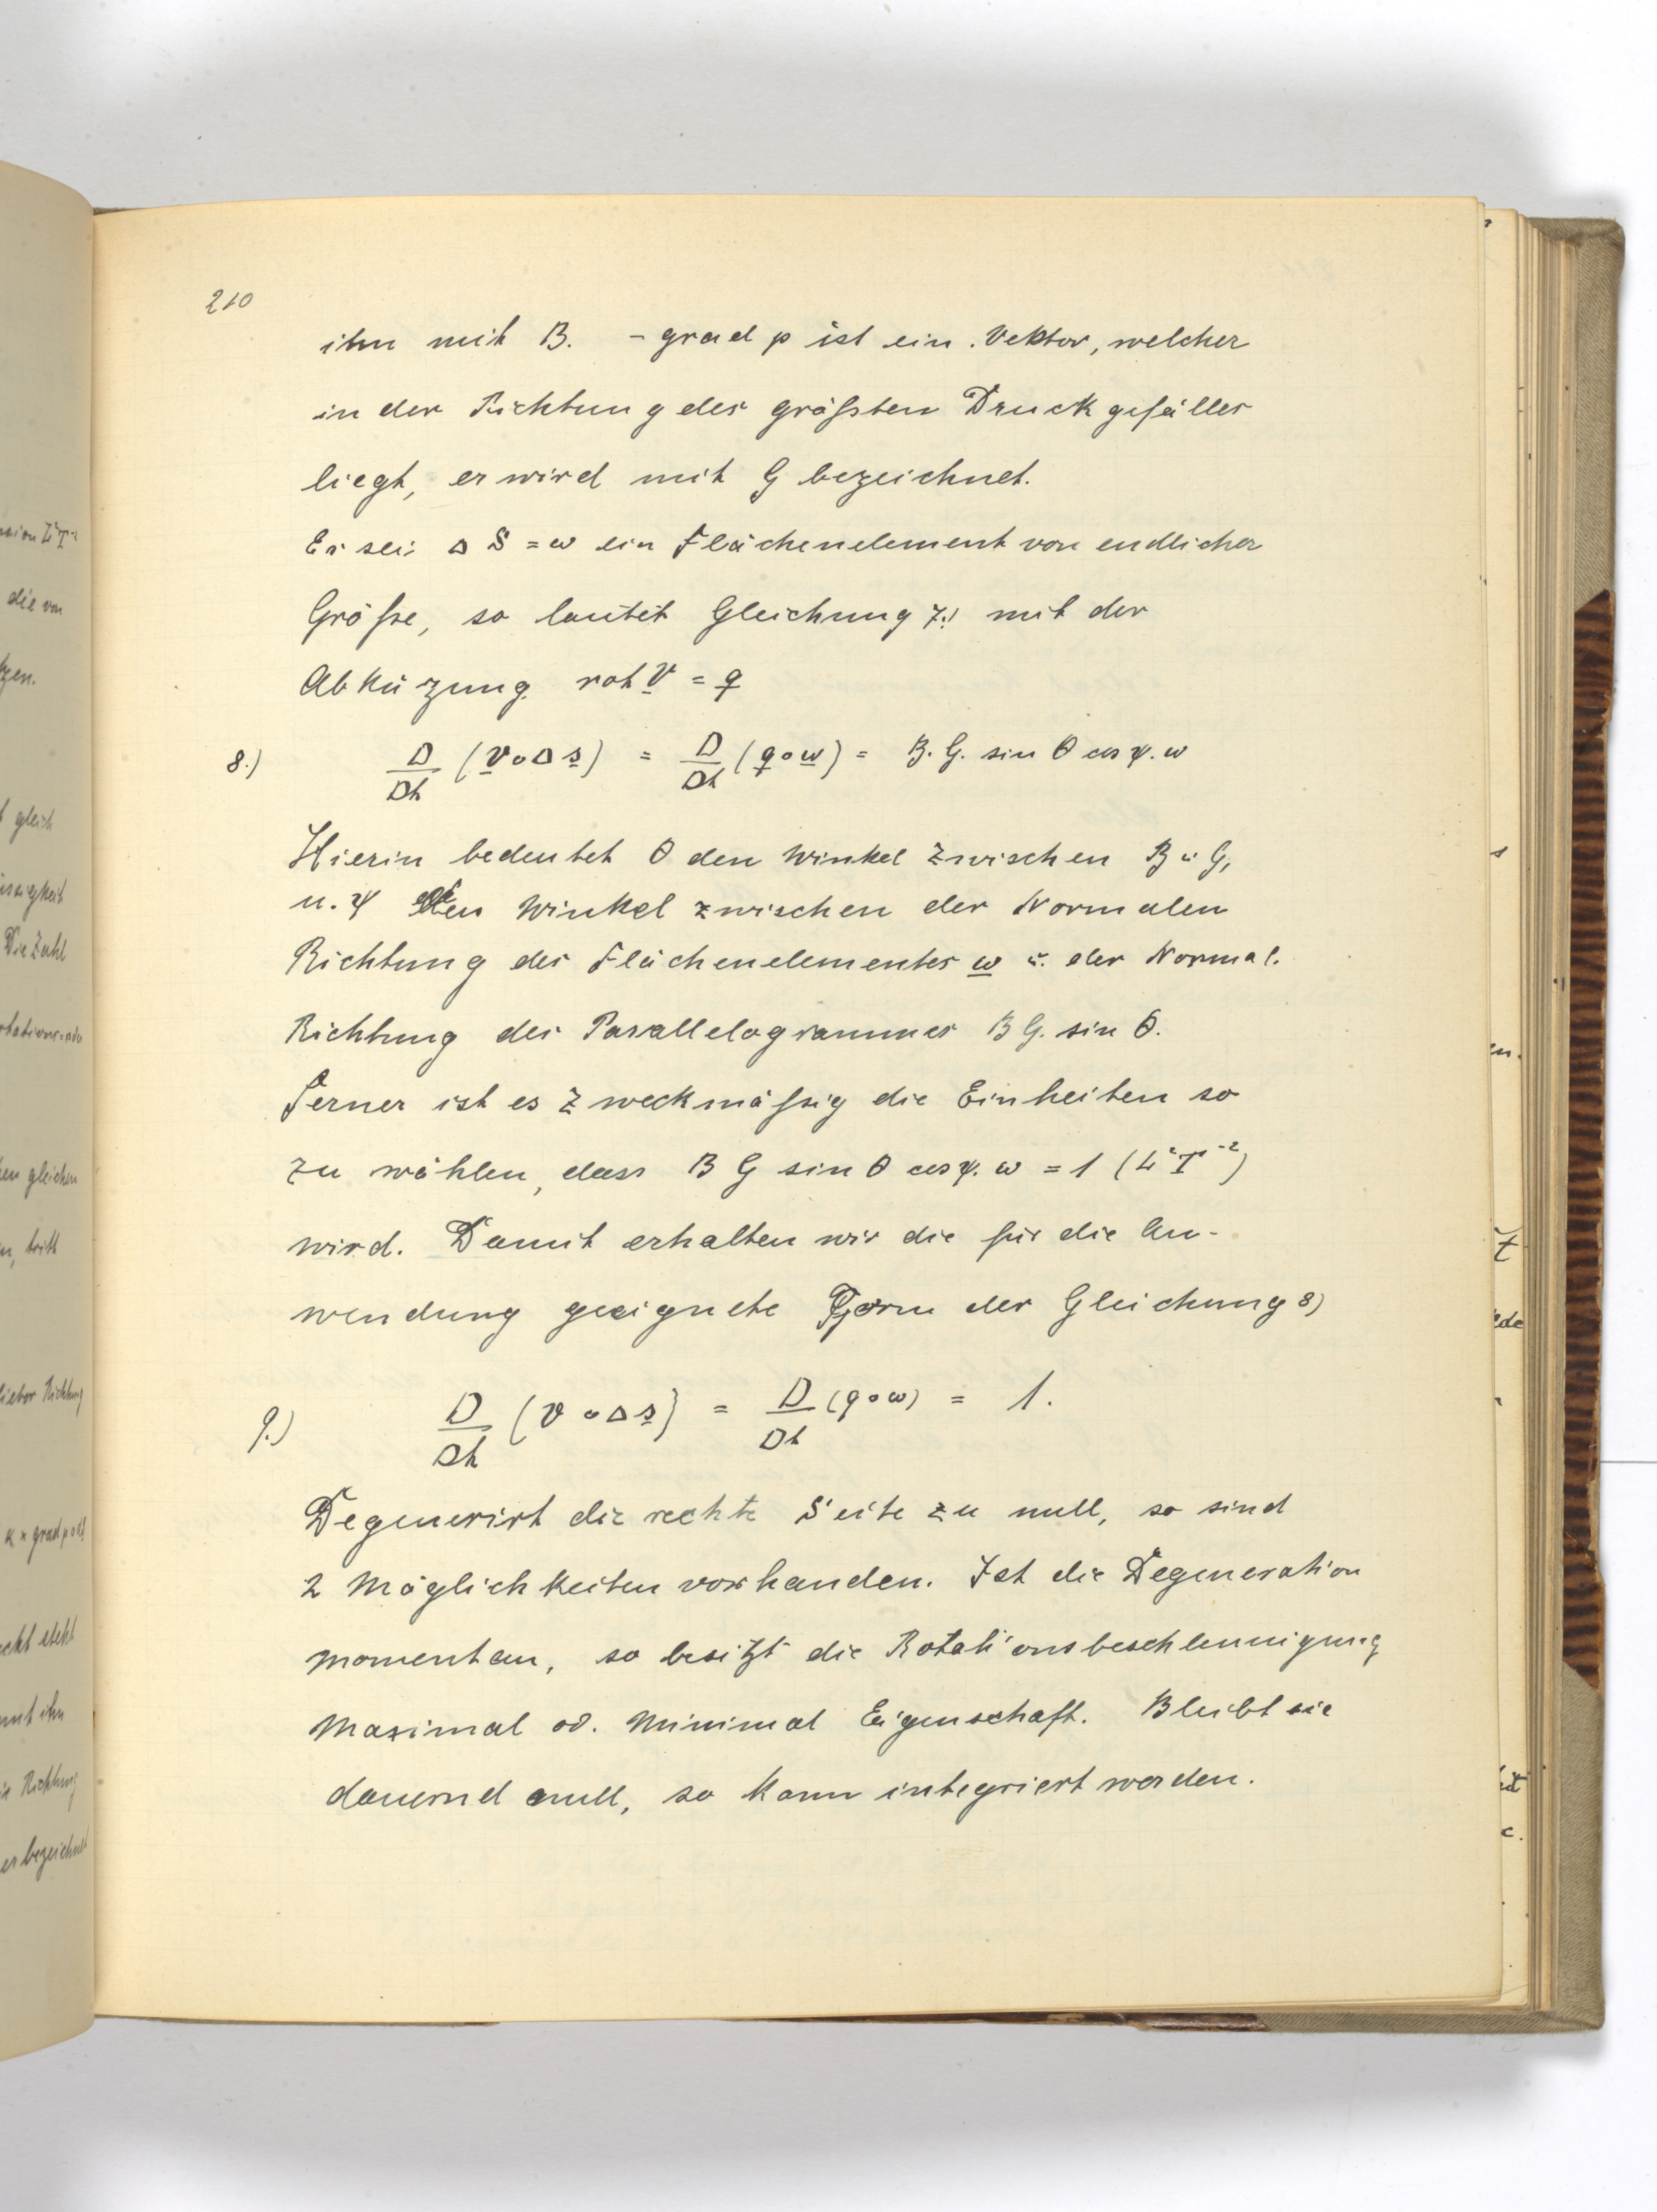 210
ihn mit B. - grad p ist ein Vektor, welcher
in der Richtung des größten Druckgefälles
liegt, er wird mit G bezeichnet.
Es sei Δ S = ω ein Flächenelement von endlicher
Größe, so lautet Gleichung 7.) mit der
Abküzung rot v = q
8.) D/Dt (v ∘ Δ s) = D/Dt (q ∘ ω) = B. G. sin θ cos ψ. ω
Hierin bedeutet θ den Winkel zwischen B u G,
u. ψ den Winkel zwischen der Normalen
Richtung des Flächenelementes ω u. der Normal.
Richtung des Parallelogrammes B G. sin θ.
Ferner ist es zweckmäßig die Einheiten so
zu wählen, dass B G sin θ cos ψ. ω = 1 (L² T⁻²)
wird. Damit erhalten wir die für die An-
wendung geeignete Form der Gleichung 8)
9.) D/Dt (v ∘ Δ s) = D/Dt (q ∘ ω) = 1.
Degenerirt die rechte Seite zu null, so sind
2 Möglichkeiten vorhanden. Ist die Degeneration
momentan, so besitzt die Rotationsbeschleunigung
Maximal od. Minimal Eigenschaft. Bleibt sie
dauernd null, so kann integriert werden.